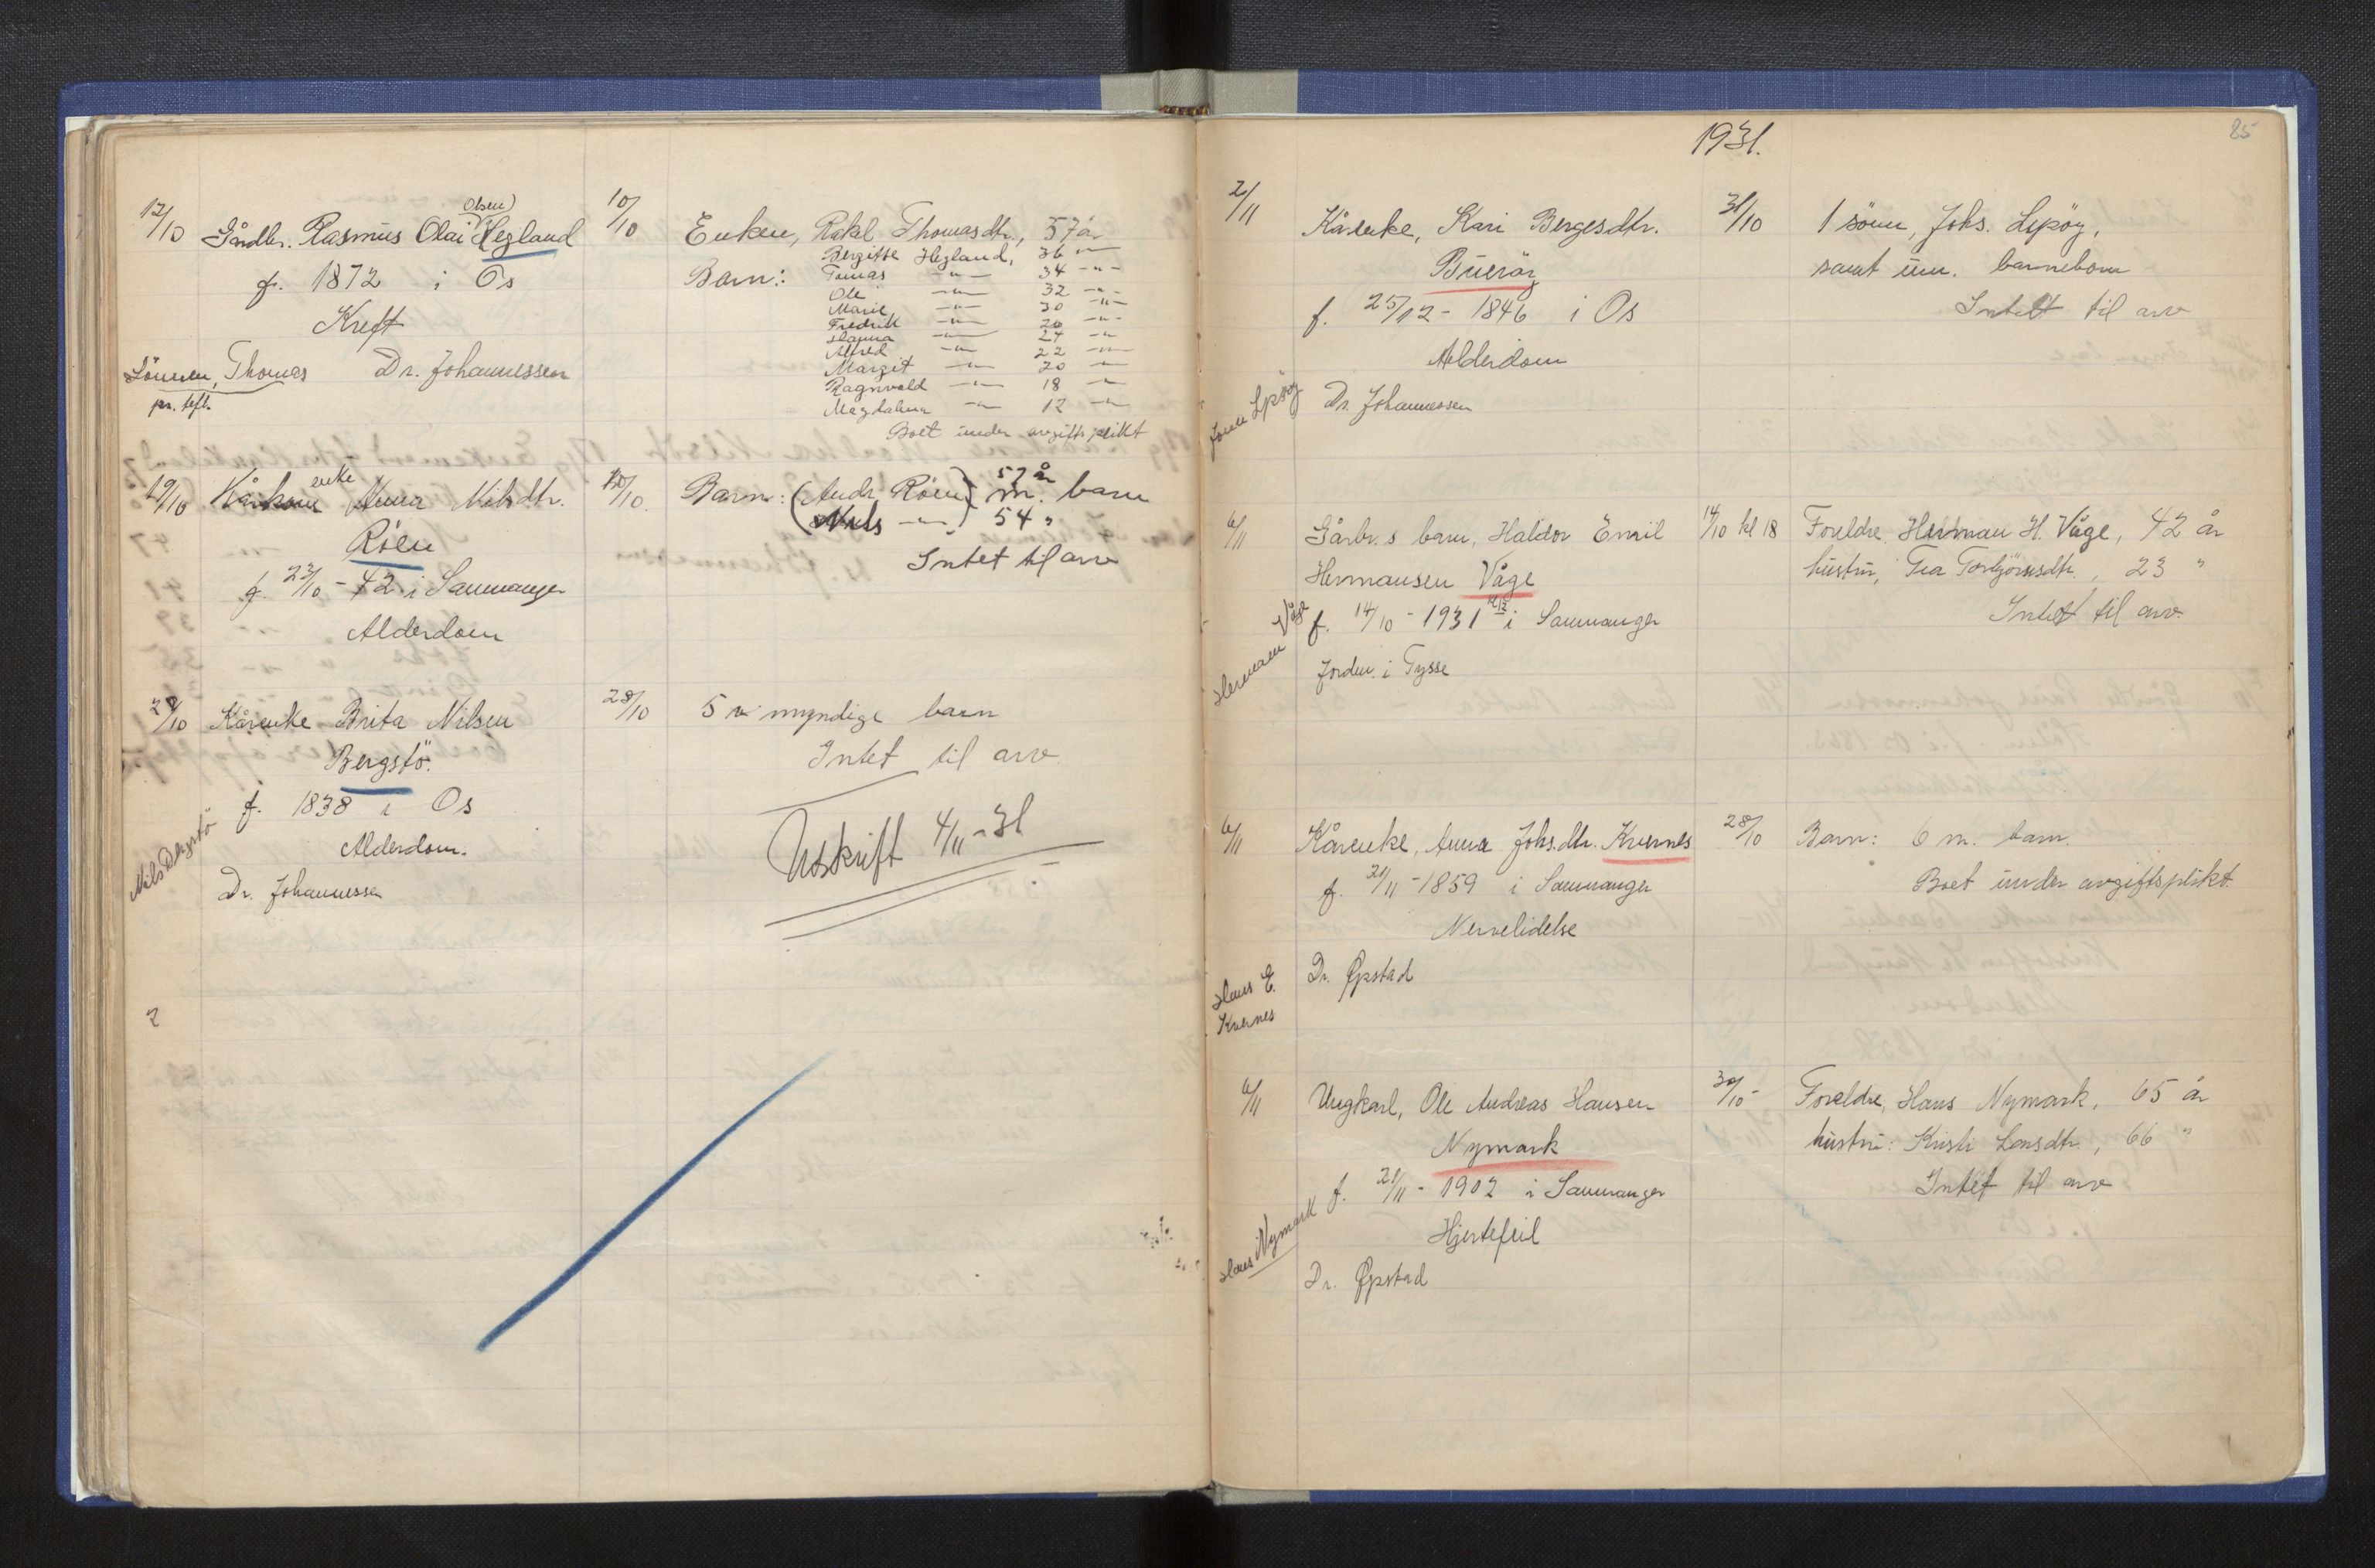 12/10 Gårdbr. Rasmus Olai (Olsen) Hegland
f. 1872 i Os
Kreft
Sönnen, Thomas Dr. Johannessen
pr. tefl.
10/10 Enken, Rakel Thomasdtr., 57 år
Barn: Bergitte Hegland, 36 —"—
Tomas —"— 34 —"—
Ole —"— 32 —"—
Marie —"— 30 —"—
Fredrik —"— 26 —"—
Hanna —"— 24 —"—
Alfred —"— 22 —"—
Margit —"— 20 —"—
Ragnvald —"— 18 —"—
Magdalena —"— 12 —"—
Boet under avgiftsplikt
19/10 Kårkone enke Anna Nilsdtr.
Röen
f. 23/10 - 42 i Samnanger
Alderdom
10/10. Barn: (Andr. Röen) 57 år m. barn
(Nils —"—) 54 "
Intet til arv
28/10 Kårenke Brita Nilsen
Bergstö.
f. 1838 i Os
Alderdom.
Nils Bergstö
Dr. Johannessen
28/10 5 myndige barn
Intet til arv
Utskrift 4/11 - 31
2
1931.
25
2/11 Kårenke, Kari Bergesdtr.
Bueröy
f. 25/12 - 1846 i Os
Alderdom
Dr. Johannessen
Lepsöy
31/10 1 sönn, Johs. Lepsöy,
samt um. barnebarn
Intet til arv
6/11 Gårbr.s barn, Haldor Emil
Hermansen Våge
f. 14/10 - 1931 kl 12 i Samnanger
Jordm. i Tysse
Herman Våge
14/10 kl 18 Foreldre, Herman H. Våge, 42 år
hustru, Tea Torbjörnsdtr., 23 "
Intet til arv.
6/11 Kårenke, Anna Johs.dtr. Kvernes
f. 21/11 - 1859 i Samnanger
Nervelidelse
Dr. Øpstad
Hans E.
Kvernes
28/10 Barn: 6 m. barn.
Boet under avgiftsplikt.
6/11 Ungkarl, Ole Andreas Hansen
Nymark
f. 21/11 - 1902 i Samnanger
Hjertefeil
Hans Nymark
Dr. Øpstad
30/10 - Foreldre, Hans Nymark, 65 år
hustru: Kristi Larsdtr., 66 "
Intet til arv